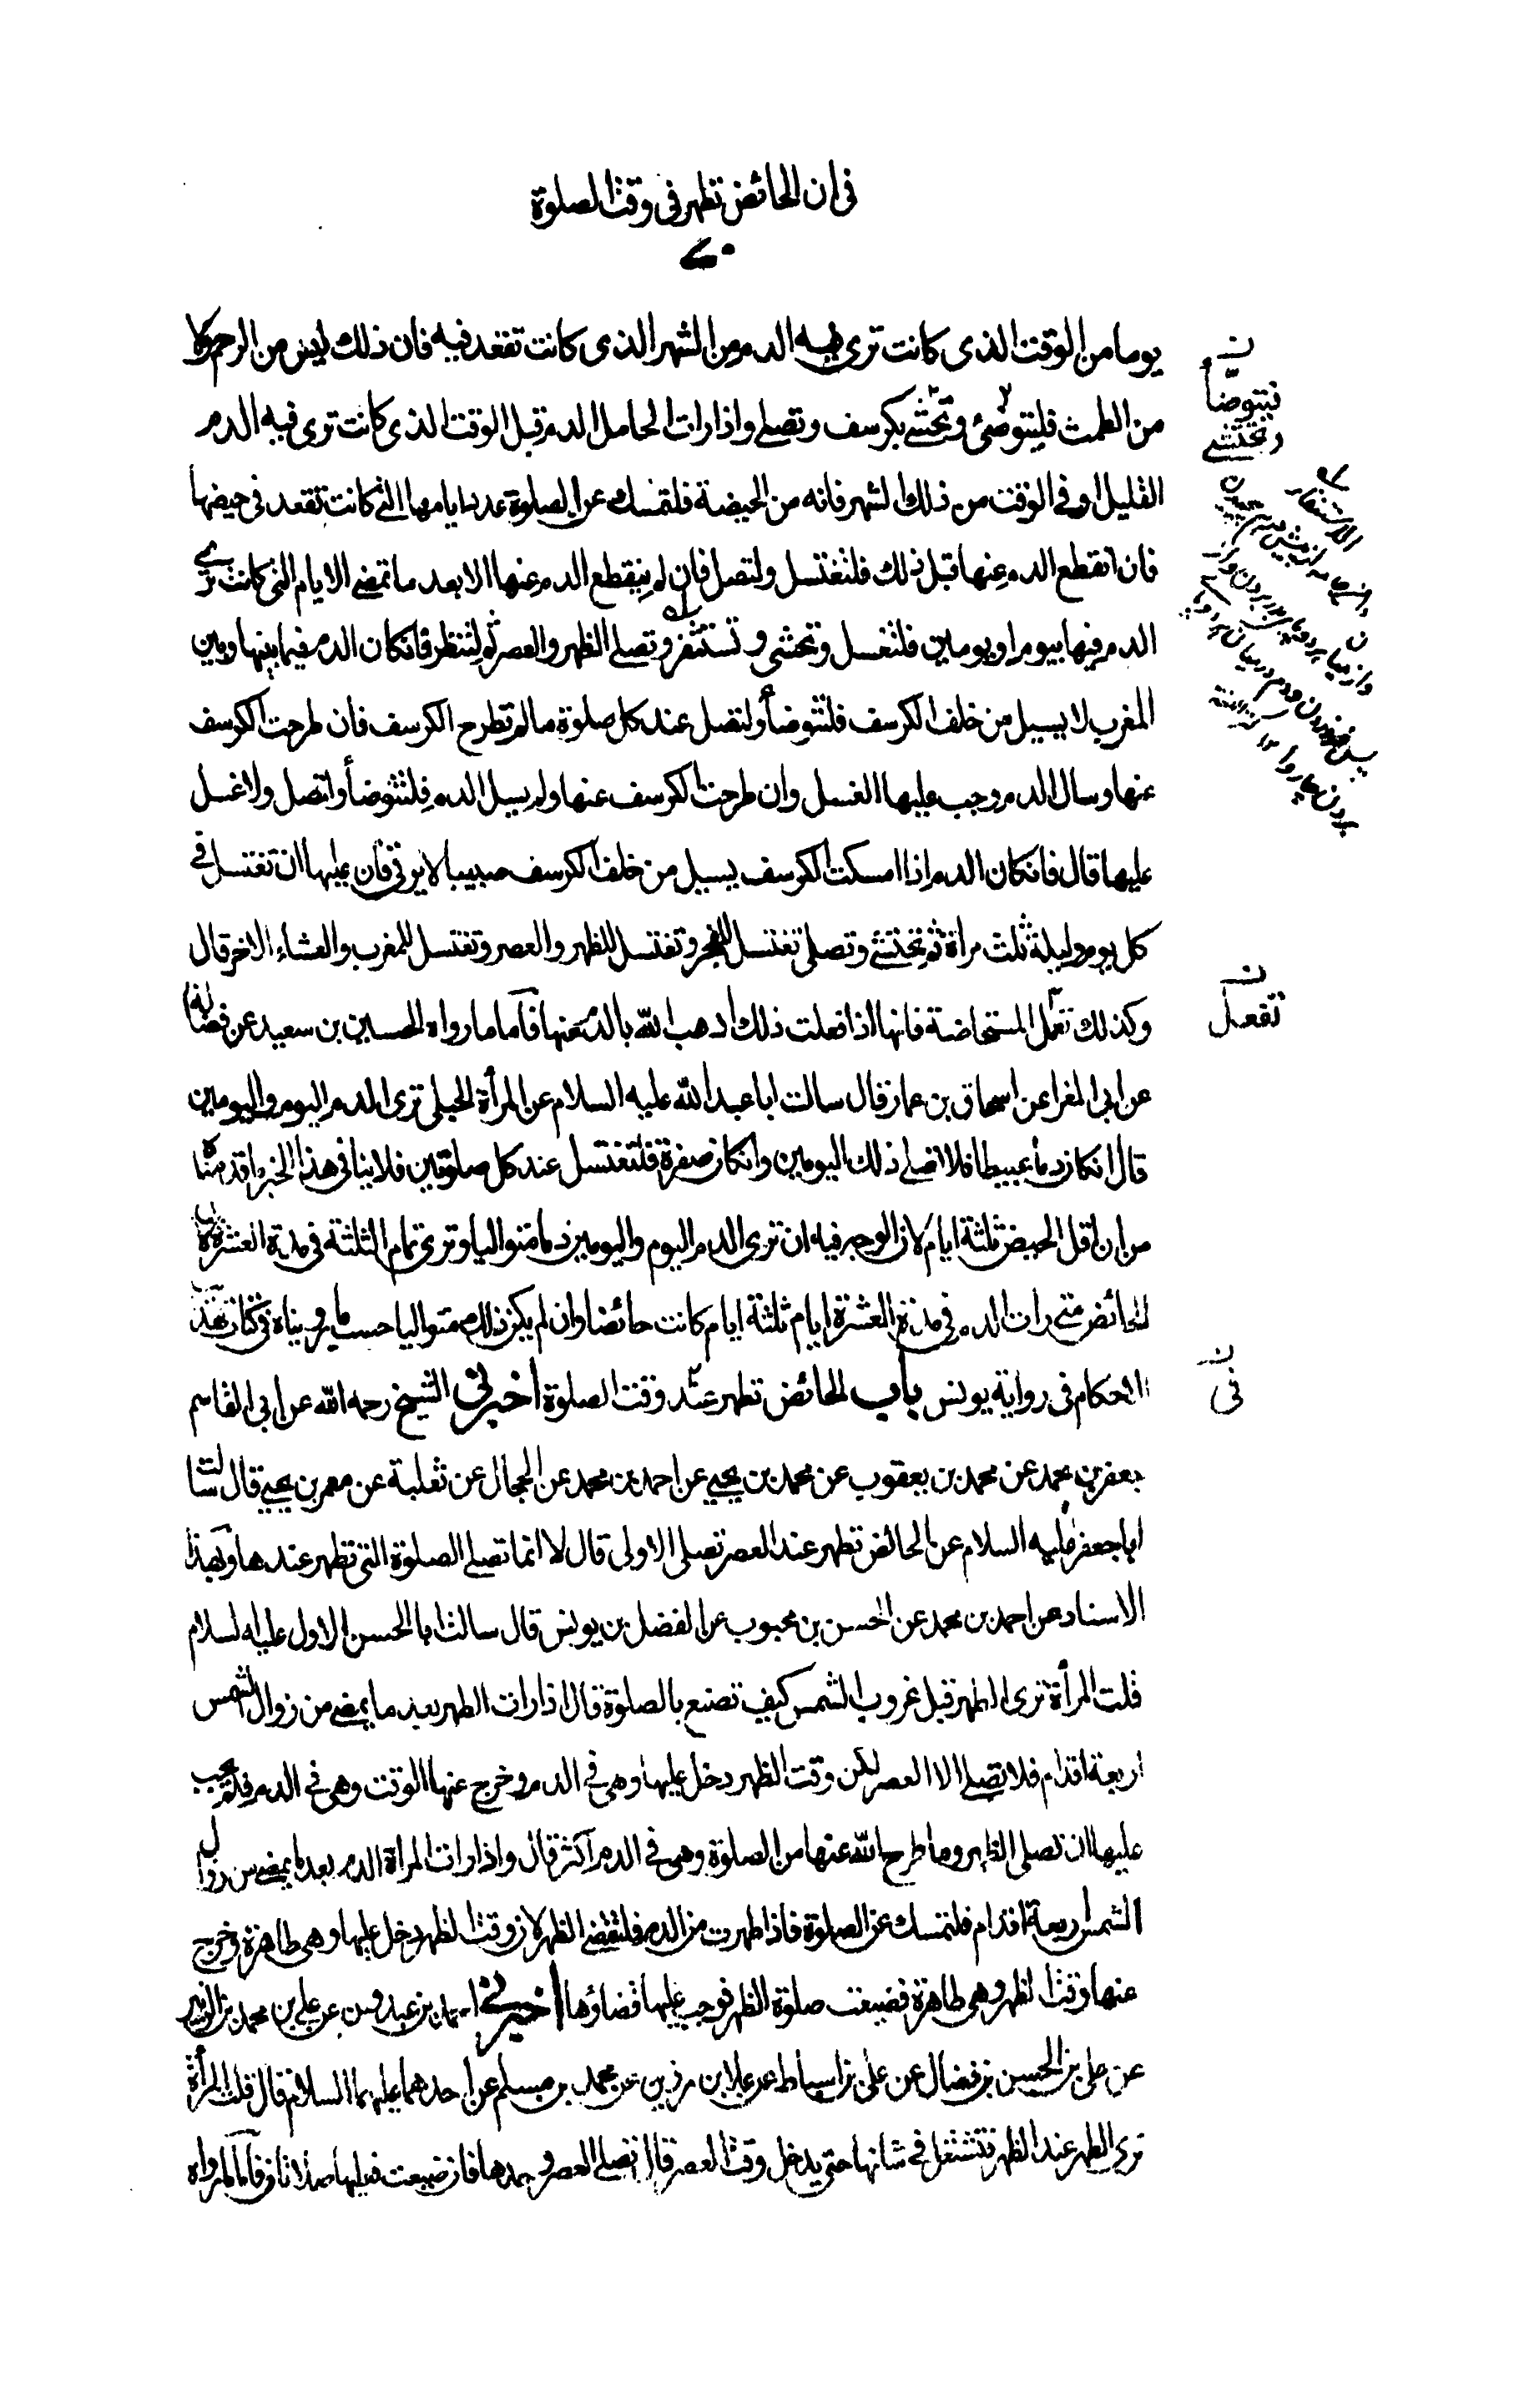 فى ان الحائض تطهر فى وقت الصلوة
٧٠
يوما من الوقت الذى كانت ترى فيه الدم من الشهر الذى كانت تقعد فيه فان ذلك ليس من الرحم ولا
من الطمث فليتوضئ وتحتشى بكرسف وتصلى واذا رات الحامل الدم قبل الوقت الذى كانت ترى فيه الدم
القليل او فى الوقت من ذلك الشهر فانه من الحيضة فلتمسك عن الصلوة عدد ايامها التى كانت تقعد فى حيضها
فان انقطع الدم عنها قبل ذلك فلتغتسل ولتصل فان لم ينقطع الدم عنها الا بعد ما تمضى الايام التى كانت ترى
الدم فيها بيوم او يومين فلتغسل وتحتشى وتستثفر وتصلى الظهر والعصر ثم لتنظر فانكان الدم فيما بينها وبين
المغرب لا يسيل من خلف الكرسف فلتتوضأ ولتصل عند كل صلوة ما لم تطرح الكرسف فان طرحت الكرسف
عنها وسال الدم وجب عليها الغسل وان طرحت الكرسف عنها ولم يسيل الدم فلتتوضأ ولتصل ولا غسل
عليها قال فانكان الدم اذا امسكت الكرسف يسيل من خلف الكرسف صبيبا لا يرقى فان عليها ان تغتسل فى
كل يوم وليلة ثلث مرأة ثم تحتشى وتصلى تغتسل للفجر وتغتسل للظهر والعصر وتغتسل للمغرب والعشاء الاخر قال
وكذلك تفعل المستحاضة فانها اذا فعلت ذلك اذهب الله بالدم عنها فاما ما رواه الحسين بن سعيد عن فضالة
عن ابى المغرا عن اسحاق بن عمار قال سالت ابا عبد الله عليه السلام عن المرأة الحبلى ترى الدم اليوم واليومين
قال انكان دما عبيطا فلا تصلى ذلك اليومين وانكان صفرة فلتغتسل عند كل صلوتين فلا ينافى هذا الخبر ما قدمناه
من ان اقل الحيض ثلثة ايام لان الوجه فيه ان ترى الدم اليوم واليومين دما متواليا وترى تمام الثلثة فى مدة العشرة لان
الحائض متى رات الدم فى مدة العشرة ايام ثلثة ايام كانت حائضا وان لم يكن ذلك متواليا حسب ما بيناه فى كتاب تهذيب
الاحكام فى رواية يونس باب الحائض تطهر عند وقت الصلوة اخبرنى الشيخ رحمه الله عن ابى القاسم
جعفر بن محمد عن محمد بن يعقوب عن محمد بن يحيى عن احمد بن محمد عن الحجال عن ثعلبة عن معمر بن يحيى قال سالت
ابا جعفر عليه السلام عن الحائض تطهر عند العصر تصلى الاولى قال لا انما تصلى الصلوة التى تطهر عندها وبهذا
الاسناد عن احمد بن محمد عن الحسن بن محبوب عن الفضل بن يونس قال سالت ابا الحسن الاول عليه السلام
قلت المرأة ترى الطهر قبل غروب الشمس كيف تصنع بالصلوة قال اذا رات الطهر بعد ما يمضى من زوال الشمس
اربعة اقدام فلا تصلى الا العصر لكن وقت الظهر دخل عليها وهى فى الدم وخرج عنها الوقت وهى فى الدم فلم يجب
عليها ان تصلى الظهر وما طرح الله عنها من الصلوة وهى فى الدم اكثر قال واذا رات المرأة الدم بعد ما يمضى من زوال
الشمس اربعة اقدام فلتمسك عن الصلوة فاذا طهرت من الدم فلتقض الظهر لان وقت الظهر دخل عليها وهى طاهرة وخرج
عنها وقت الظهر وهى طاهرة فضيعت صلوة الظهر فوجب عليها قضاؤها اخبرنى احمد بن عبدون عن على بن محمد بن الزبير
عن على بن الحسن بن فضال عن على بن اسباط عن علا بن رزين عن محمد بن مسلم عن احدهما عليهما السلام قال قلت المرأة
ترى الطهر عند الظهر فتشتغل فى شانها حتى يدخل وقت العصر قال تصلى العصر وحدها فان ضيعت فعليها صلاتان فاما ما رواه
ن
فتتوضأ
وتحتشى
الاستثفار
ن
تفعل
ن
فى